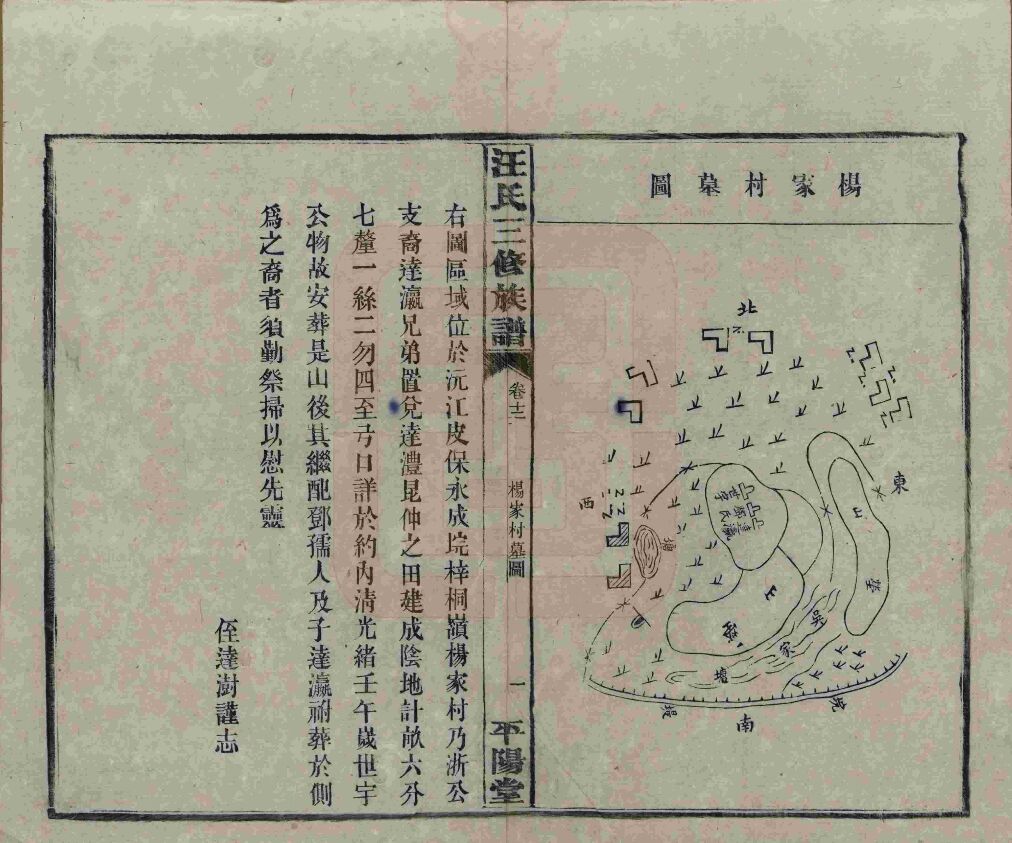 楊家村墓圖
北
東
西
南
世字
鄧氏
達瀛
塘
吴家塊
堤
汪氏三修族譜
卷十二
楊家村墓圖
一
平陽堂
右圖區域位於沅江皮保永成垸梓桐嶺楊家村乃浙公
支裔達瀛兄弟置兌達澧昆仲之田建成陰地計畝六分
七釐一絲二勿四至弓口詳於約內清光緒壬午歲世宇
公物故安葬是山後其繼配鄧孺人及子達瀛祔葬於側
爲之裔者須勤祭掃以慰先靈
侄達澍謹志